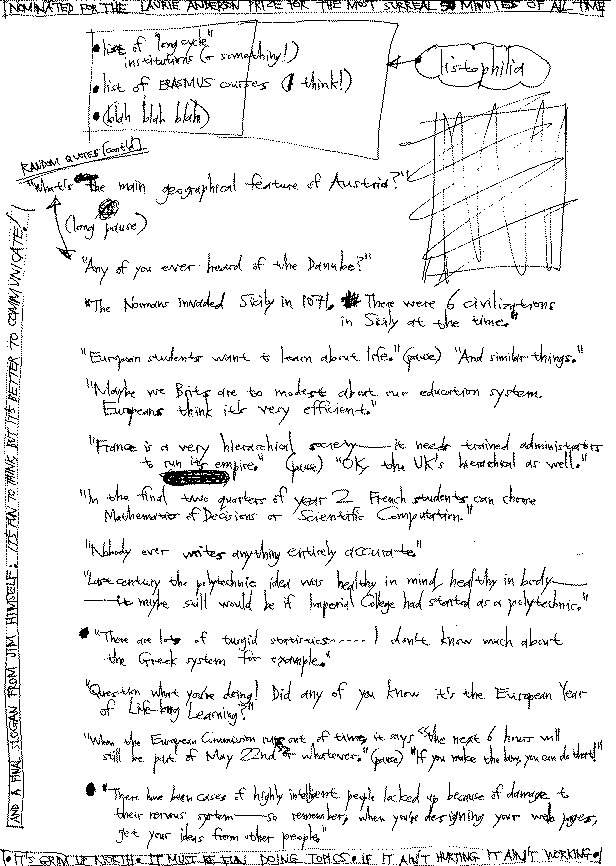 NOMINATED FOR THE LAURIE ANDERSON PRIZE FOR THE MOST SURREAL 50 MINUTES OF ALL TIME
• list of "long cycle"
institutions (+ something!)
• list of ERASMUS courses (I think!)
• (blah blah blah)
istophilia
RANDOM QUOTES [contd]
"What's the main geographical feature of Austria?"
(long pause)
"Any of you ever heard of the Danube?"
"The Normans invaded Sicily in 1071. There were 6 civilizations
in Sicily at the time."
"European students want to learn about life." (pause) "And similar things."
"Maybe we Brits are to modest about our education system.
Europeans think it's very efficient."
"France is a very hierarchical society — it needs trained administrators
to run its empire." (pause) "OK, the UK's hierarchical as well."
"In the final two quarters of year 2 French students can choose
Mathematics of Decisions or Scientific Computation."
"Nobody ever writes anything entirely accurate."
"Last century the polytechnic idea was healthy in mind, healthy in body —
— it maybe still would be if Imperial College had started as a polytechnic."
• "There are lots of turgid statistics ----- I don't know much about
the Greek system for example."
"Question what you're doing! Did any of you know it's the European Year
of Life-long Learning?"
"When the European Commission runs out of time, it says "the next 6 hours will
still be part of May 22nd or whatever." (pause) "If you make the law, you can do that!"
• "There have been cases of highly intelligent people locked up because of damage to
their nervous system — so remember, when you're designing your web pages,
get your ideas from other people."
AND A FINAL SLOGAN FROM JIM HIMSELF: IT'S FUN TO THINK, BUT IT'S BETTER TO COMMUNICATE!
• IT'S GRIM UP NORTH • IT MUST BE FUN DOING TOPICS • IF IT AIN'T HURTING IT AIN'T WORKING •